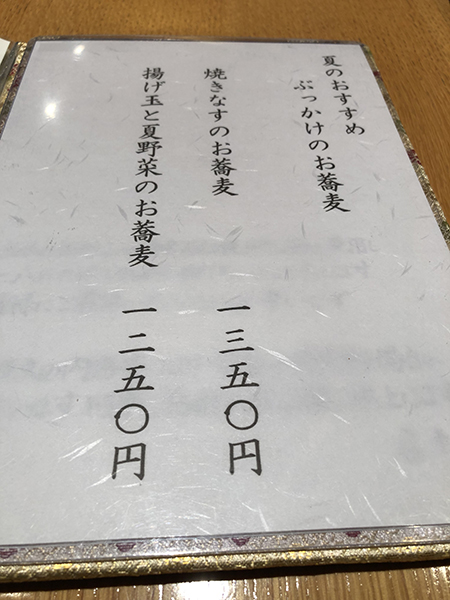 夏のおすすめ
ぶっかけのお蕎麦
焼きなすのお蕎麦 一三五〇円
揚げ玉と夏野菜のお蕎麦 一二五〇円